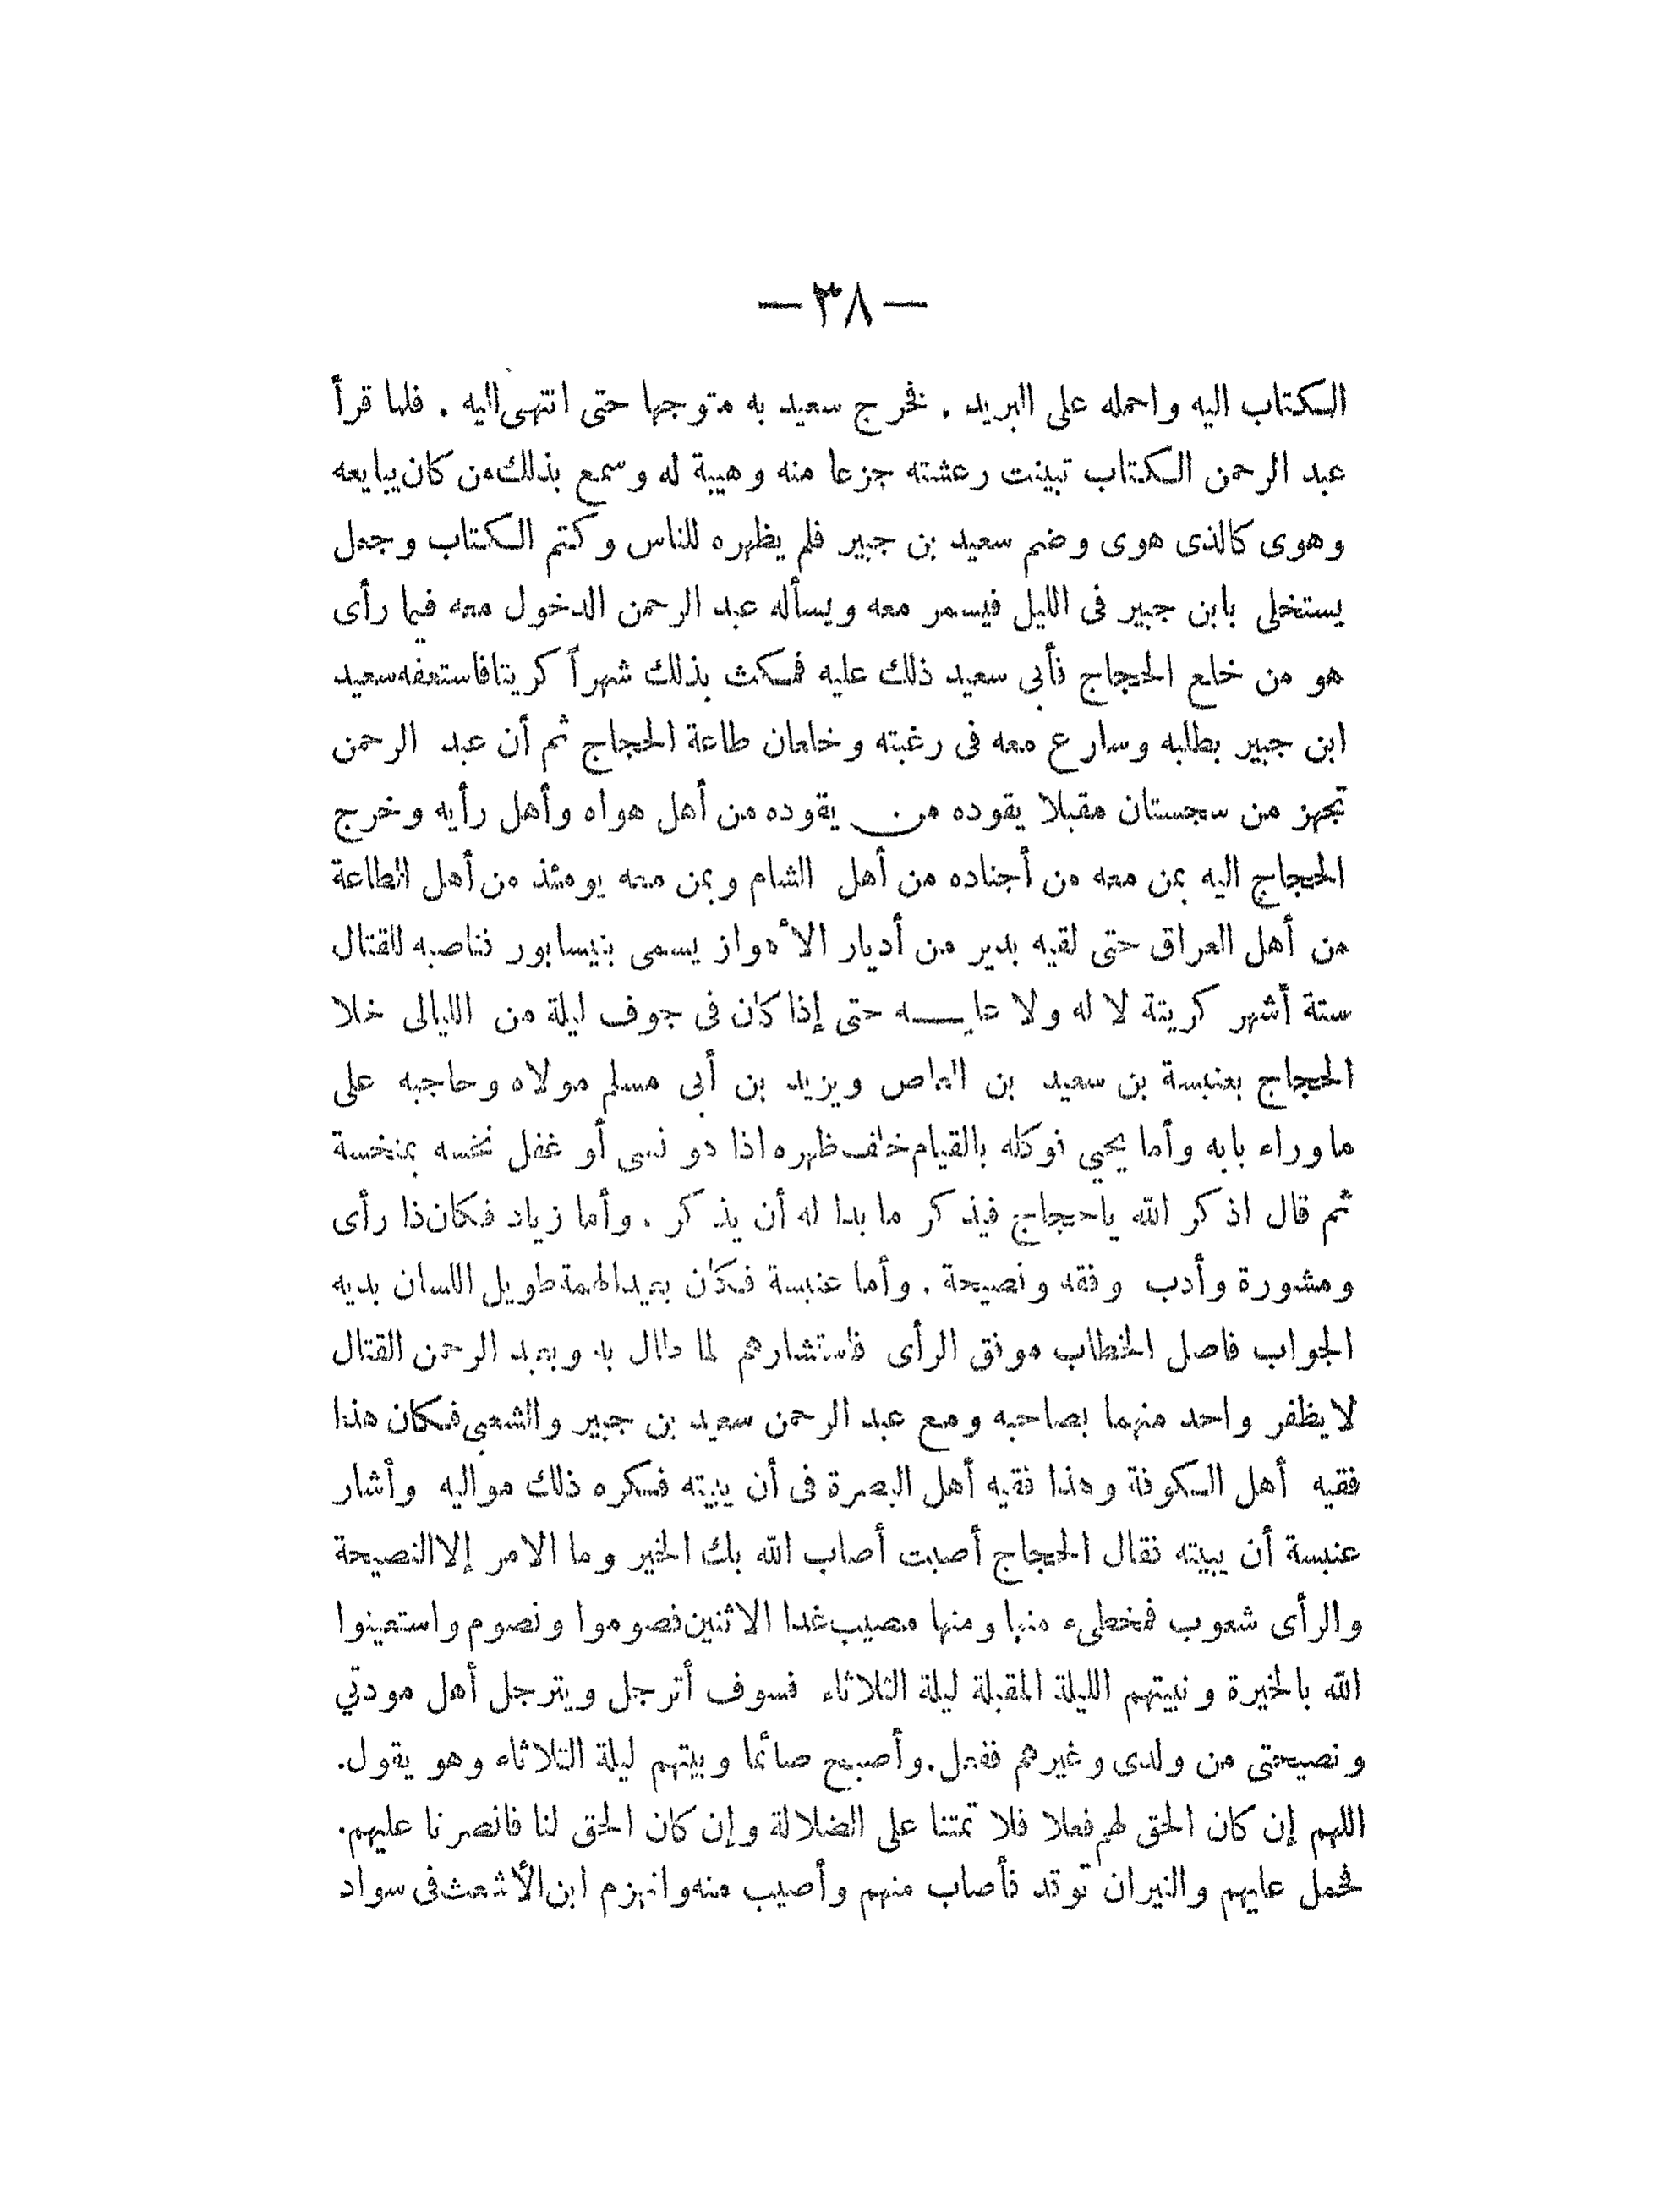 — ٣٨ —
الكتاب اليه واحمله على البريد . فخرج سعيد به متوجها حتى انتهى اليه . فلما قرأ
عبد الرحمن الكتاب تبينت رعشته جزعا منه وهيبة له وسمع بذلك من كان يبايعه
وهوى كالذى هوى وضم سعيد بن جبير فلم يظهره للناس وكتم الكتاب وجعل
يستخلى بابن جبير فى الليل فيسمر معه ويسأله عبد الرحمن الدخول معه فيما رأى
هو من خلع الحجاج فأبى سعيد ذلك عليه فمكث بذلك شهراً كريتا فاستعفه سعيد
ابن جبير بطلبه وسارع معه فى رغبته وخلعان طاعة الحجاج ثم أن عبد الرحمن
تجهز من سجستان مقبلا يقوده من يقوده من أهل هواه وأهل رأيه وخرج
الحجاج اليه بمن معه من أجناده من أهل الشام وبمن معه يومئذ من أهل الطاعة
من أهل العراق حتى لقيه بدير من أديار الأهواز يسمى بنيسابور فناصبه للقتال
ستة أشهر كريتة لا له ولا عليـــه حتى إذا كان فى جوف ليلة من الليالى خلا
الحجاج بعنبسة بن سعيد بن العاص ويزيد بن أبى مسلم مولاه وحاجبه على
ماوراء بابه وأما يحيي فوكله بالقيام خلف ظهره اذا هو نسى أو غفل نخسه بمنخسة
ثم قال اذكر الله ياحجاج فيذكر ما بدا له أن يذكر . وأما زياد فكان ذا رأى
ومشورة وأدب وفقه ونصيحة . وأما عنبسة فكان بعيد الهمة طويل اللسان بديه
الجواب فاصل الخطاب موفق الرأى فاستشارهم لما طال به وبعبد الرحمن القتال
لايظفر واحد منهما بصاحبه ومع عبد الرحمن سعيد بن جبير والشعبى فكان هذا
فقيه أهل الكوفة وهذا فقيه أهل البصرة فى أن يبيته فكره ذلك مواليه وأشار
عنبسة أن يبيته فقال الحجاج أصبت أصاب الله بك الخير وما الامر إلا النصيحة
والرأى شعوب فمخطىء منها ومنها مصيب غدا الاثنين فصوموا ونصوم واستعينوا
الله بالخيرة ونبيتهم الليلة المقبلة ليلة الثلاثاء فسوف أترجل ويترجل أهل مودتي
ونصيحتى من ولدى وغيرهم ففعل. وأصبح صائما وبيتهم ليلة الثلاثاء وهو يقول.
اللهم إن كان الحق لهم فعلا فلا تمتنا على الضلالة وإن كان الحق لنا فانصرنا عليهم.
فحمل عليهم والنيران توقد فأصاب منهم وأصيب منه وانهزم ابن الأشعث فى سواد